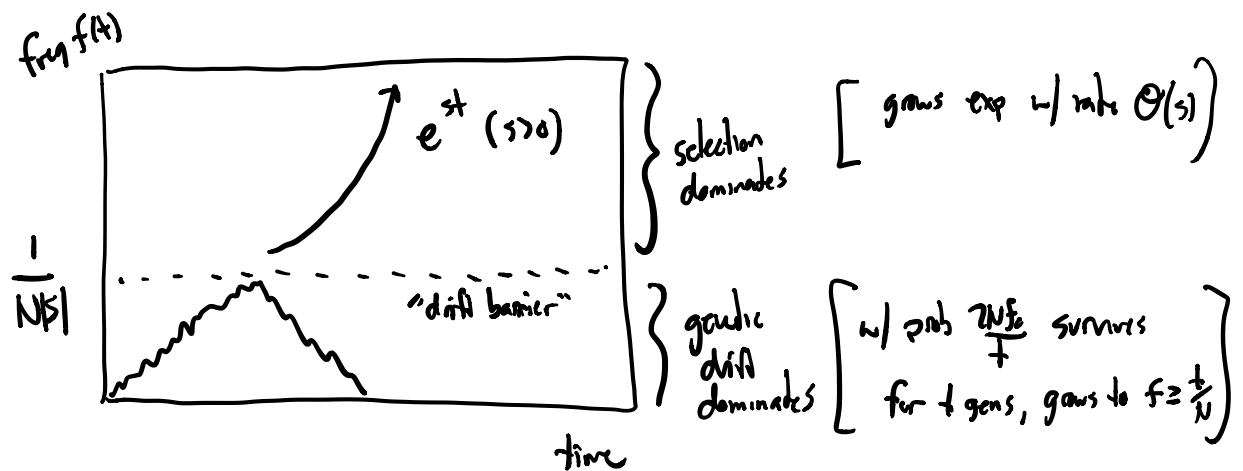 freq f(t)
e^{st} (s>0)
selection
dominates
[grows exp w/ rate Θ(s)]
1/N|s|
"drift barrier"
genetic
drift
dominates
[w/ prob 2Nf₀/t survives
for t gens, grows to f≥t/N]
time